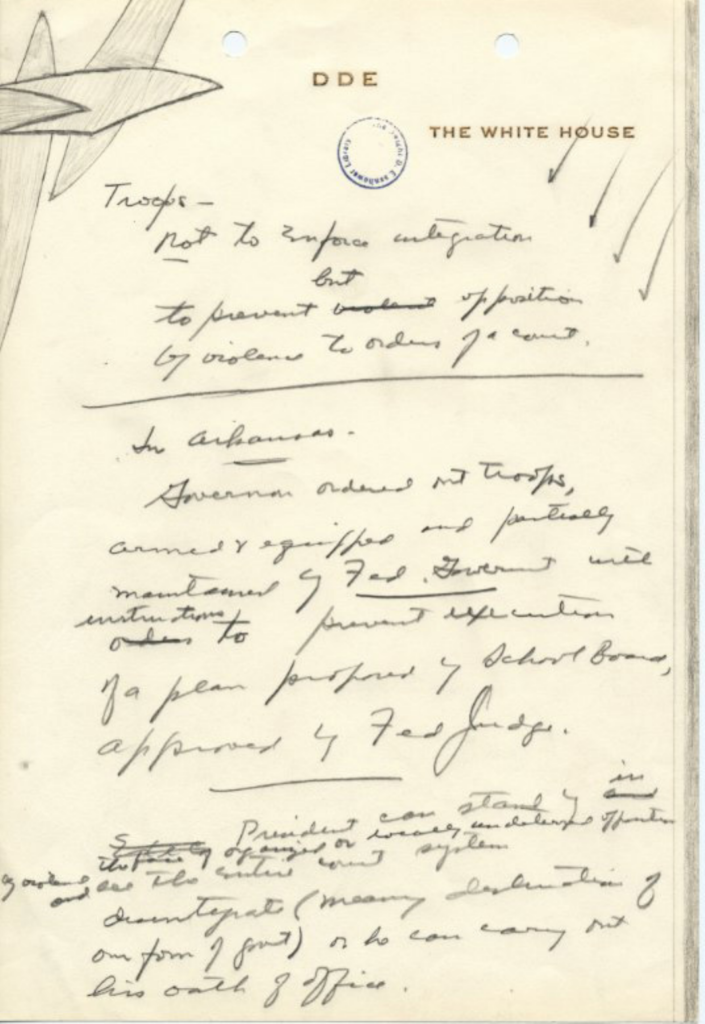 DDE
THE WHITE HOUSE
Troops –
not to enforce integration
but
to prevent violent opposition
by violence to orders of a court.
In Arkansas.
Governor ordered out troops,
armed & equipped and partially
maintained by Fed. Government with
instructions
orders to prevent execution
of a plan proposed by School Board,
approved by Fed Judge.
in
President can stand by and
the face of organized or locally undeterred opposition
by violence and see the entire court system
disintegrate (meaning destruction of
our form of govt) or he can carry out
his oath of office.